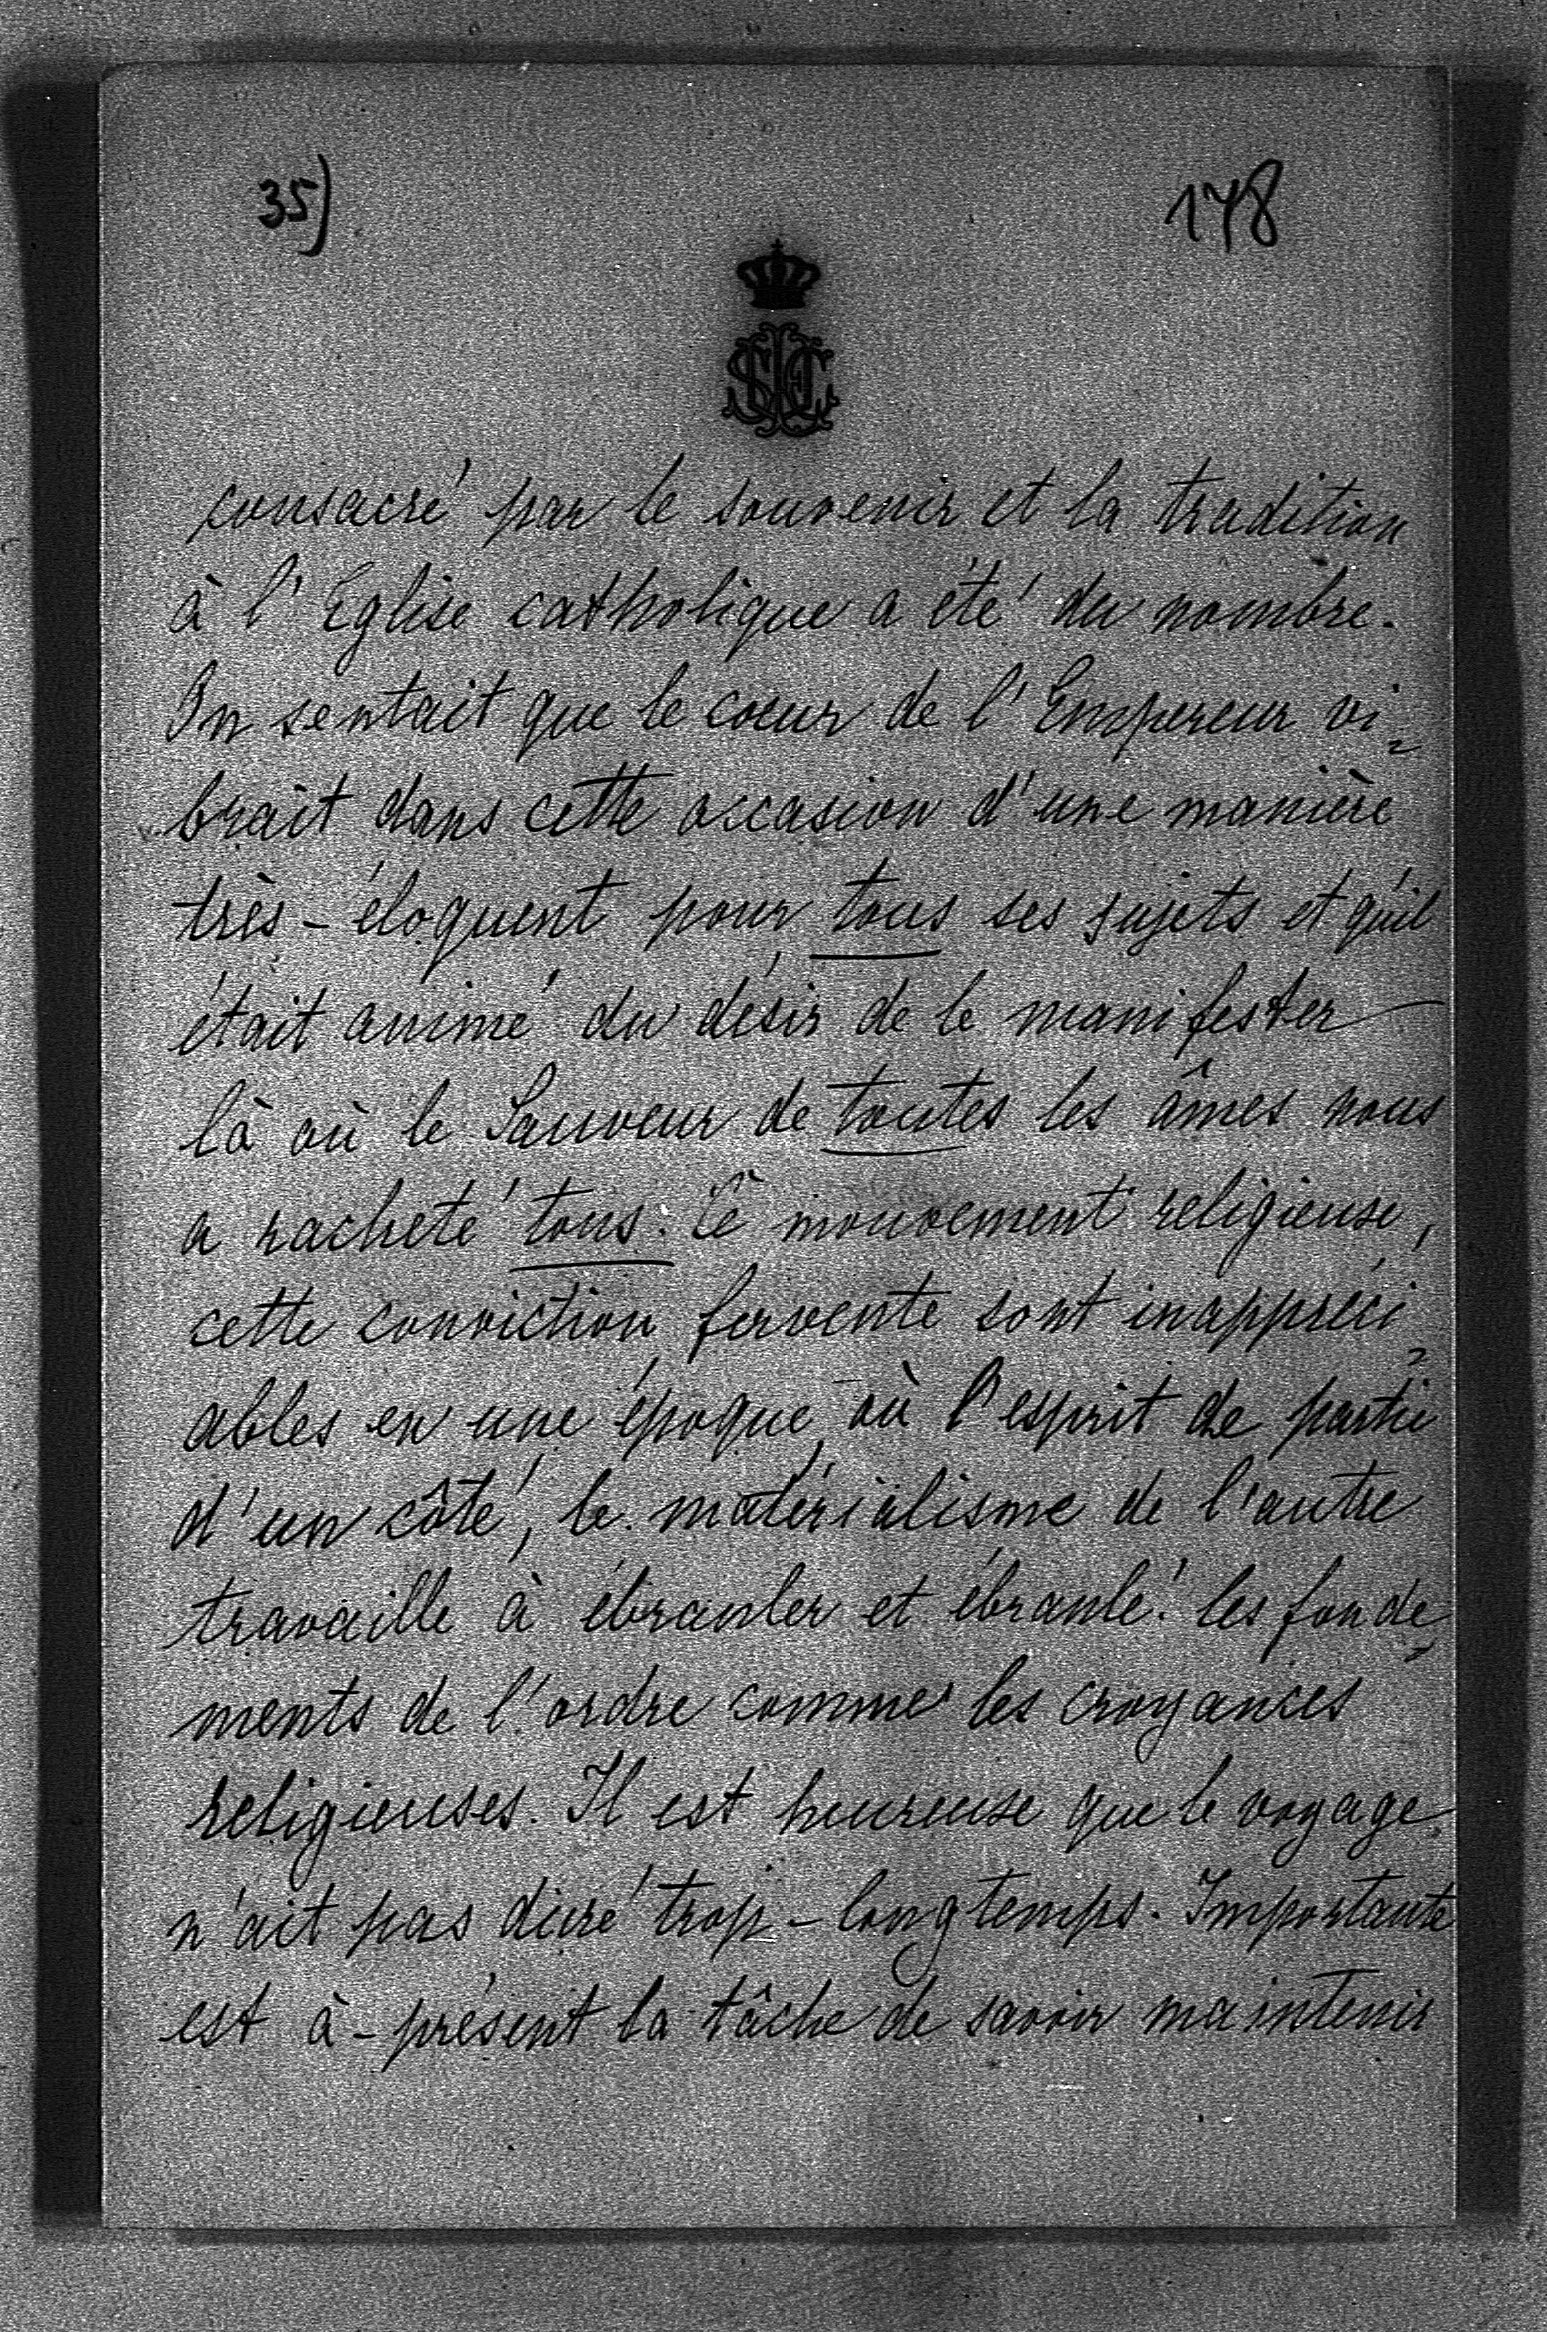 35)
178
consacré par le souvenir et la tradition
à l'Eglise catholique a été du nombre.
On sentait que le coeur de l'Empereur vi-
brait dans cette occasion d'une manière
très-éloquent pour tous ses sujets et qu'il
était animé du désir de le manifester
là où le Sauveur de toutes les âmes nous
a racheté tous. Ce mouvement religieuse,
cette conviction fervente sont inappréci-
ables en une époque où l'esprit de partie
d'un côté, le matérialisme de l'autre
travaille à ébranler et ébranlé! les fonde-
ments de l'ordre comme les croyances
religieuses. Il est heureuse que le voyage
n'ait pas duré trop-longtemps. Importante
est à-présent la tâche de savoir maintenir